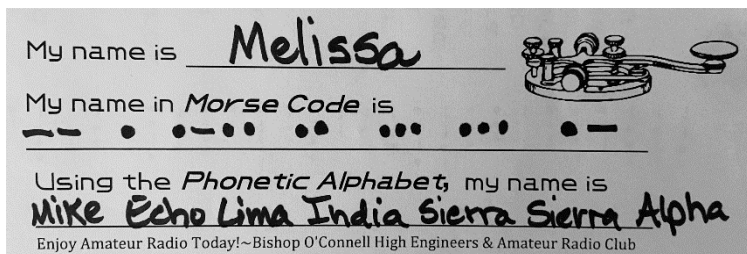 My name is Melissa
My name in Morse Code is
−− • •−•• •• ••• ••• •−
Using the Phonetic Alphabet, my name is
Mike Echo Lima India Sierra Sierra Alpha
Enjoy Amateur Radio Today!~Bishop O'Connell High Engineers & Amateur Radio Club